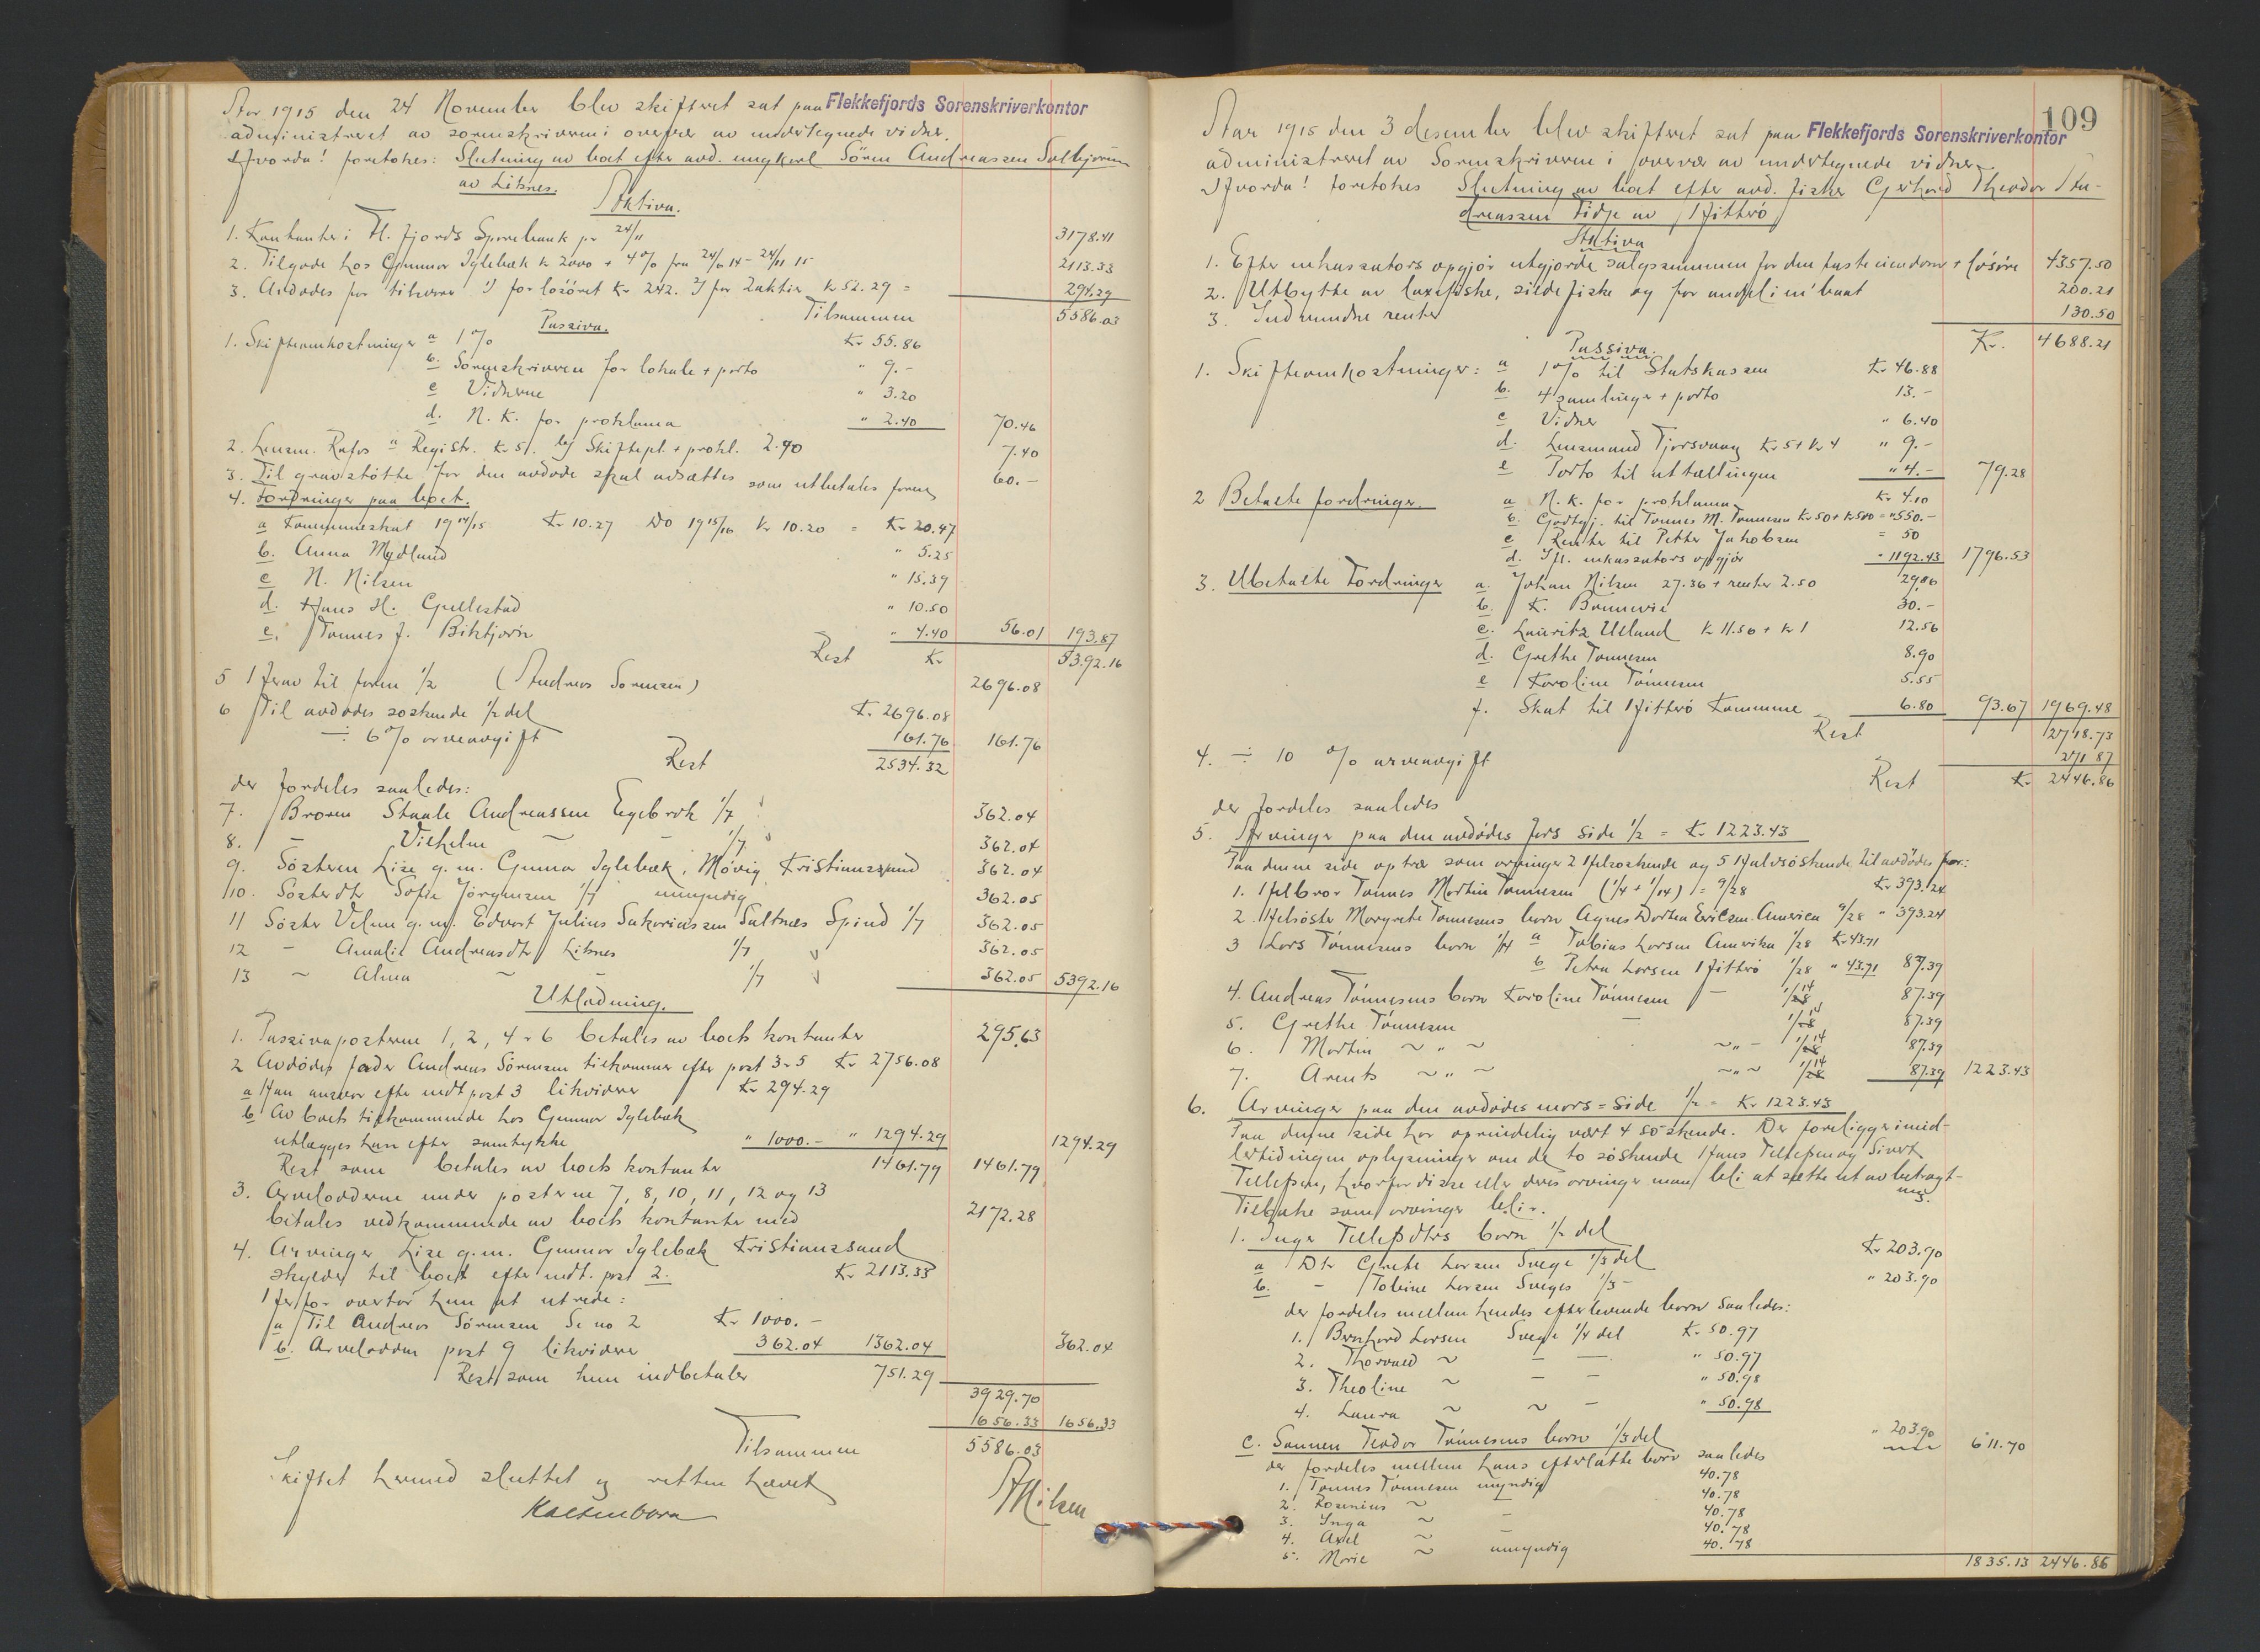 Aar 1915 den 24 November blev skifteret sat paa Flekkefjords Sorenskriverkontor
administreret av sorenskriveren i overvær av undertegnede vidner.
Hvorda! foretokes: Slutning av boet efter avd. ungkarl Sören Andreassen
av Litsnes.
Aktiva.
1. Kontanter i Fl. fjords Sparebank pr 24/11 3178.41
2. Tilgode hos Gunnar Iglebæk k 2000 + 4% fra 14 - 24/11 15 2113.33
3. Avdødes far tilsvarer 1) for løsöret Kr 242. 2) for 2 aktier k 52.29 = 294.29
Tilsammen 5586.03
Passiva.
1. Skifteomkostninger a 1% Kr 55.86
b. Sorenskriveren for lokale + porto " 9.-
c Vidnerne " 3.20
d. N. K. for proklama " 2.40 70.46
2. Lensm. Rafos a Registr. K 5/. b) Skiftepl. + prokl. 2.40 7.40
3. Til gravstøtte for den avdøde skal avsættes som utbetales faren 60.-
4. Fordringer paa boet.
a Kommuneskat 1914/15 Kr 10.27 Do 1915/16 Kr 10.20 = Kr 20.47
b. Anna Mydland " 5.25
c N. Nilsen " 15.39
d. Hans H. Gullestad " 10.50
e. Tønnes J. " 4.40 56.01 193.87
Rest Kr 5392.16
5 Herav til faren 1/2 (Andreas Sørensen) 2696.08
6 Til avdødes søskende 1/2 del Kr 2696.08
÷ 6% arveavgift 161.76 161.76
Rest 2534.32
der fordeles saaledes:
7. Broren Staale Andreassen Egebrok 1/7 362.04
8. – Vilhelm ~ 1/7 362.04
9. Søsteren Lise g.m. Gunnar Iglebæk, Møvig Kristianssand 362.04
10. Søsterdtr Sofie Jörgensen 1/7 umyndig 362.05
11 Søster Velma g.m. Edvart Julius Sakariassen Saltnes Spind 1/7 362.05
12 – Amalie Andreasdtr Litsnes 1/7 362.05
13 ~ Alma ~ – 1/7 362.05 5392.16
Utlodning.
1. Passivaposterne 1, 2, 4 & 6 betales av boets kontanter 295.63
2 Avdødes fader Andreas Sörensen tilkommer efter post 3 & 5 Kr 2756.08
a Han ansvar efter indt post 3 likviderer Kr 294.29
b Av boets tilkommende hos Gunnar Iglebæk
utlægges han efter samtykke " 1000.- " 1294.29 1294.29
Rest som betales av boets kontanter 1461.79 1461.79
3. Arveloddene under posterne 7, 8, 10, 11, 12 og 13
betales vedkommende av boets kontanter med 2172.28
4. Arvinger Lise g.m. Gunnar Iglebæk Kristianssand
skylder til boet efter indt. post 2. Kr 2113.33
Herfor overtar hun at utrede:
a Til Andreas Sörensen Se no 2 Kr 1000.-
b. Arvelodden post 9 likviderer 362.04 1362.04 362.04
Rest som hun indbetaler 751.29
3929.70
1656.33 1656.33
Tilsammen 5586.03
Skiftet hermed sluttet og retten hævet
Kaltenborn
A Nilsen
109
Aar 1915 den 3 desember blev skifteret sat paa Flekkefjords Sorenskriverkontor
administreret av Sorenskriveren i overvær av undertegnede vidner.
Hvorda! foretokes Slutning av boet efter avd. fisker Gerhard Theodor An-
dreassen Fidje av Hitterö
Aktiva
1. Efter inkassators opgjör utgjorde salgssummen for den faste eiendom + lösöre 4357.50
2. Utbytte av laxefiske, sildefiske og for andel i m'baat 200.21
3. Indvundne renter 130.50
Kr. 4688.21
Passiva.
1. Skifteomkostninger: a 1% til Statskassen Kr 46.88
b. 4 samlinger + porto 13.-
c Vidner " 6.40
d. Lensmand Tjorsvaag Kr 5 + Kr 4 " 9.-
e Porto til uttællingen " 4.- 79.28
2 Betalte fordringer. a N. k. for proklama Kr 4.10
b. Godtgj. til Tønnes M. Tønnesen Kr 50 + K 500 = " 550.-
c Renter til Petter Jakobsen = 50
d. Ifl. inkassators opgjör " 1192.43 1796.53
3. Ubetalte Fordringer a. Johan Nilsen 27.36 + renter 2.50 29.86
b. K. Bonnevie 30.-
c. Lauritz Ueland K 11.56 + Kr 1 12.56
d. Grethe Tønnesen 8.90
e Karoline Tönnesen 5.55
f. Skat til Hitterö Kommune 6.80 93.67 1969.48
Rest 2718.73
4. ÷ 10 % arveavgift 271 87
Rest Kr 2446.86
der fordeles saaledes
5. Arvinger paa den avdødes fars side 1/2 = Kr 1223.43
Paa denne side optrær som arvinger 2 Helsøskende og 5 Halvsöskende til avdödes far:
1. Helbror Tønnes Martin Tønnesen (1/4 + 1/14) = 9/28 Kr 393.24
2. Helsöster Margrete Tønnesens barn Agnes Dortea Ericsen America 9/28 " 393.24
3 Lars Tönnesens barn 1/14 a Tobias Larsen Amerika 1/28 Kr 43.71
b Petra Larsen Hitterö 1/28 " 43.71 87.39
4. Andreas Tönnesens barn Karoline Tönnesen – 1/14 87.39
5. Grethe Tönnesen – 1/14 87.39
6. Martin ~ " ~ ~ " – 1/14 87.39
7. Arent ~ " ~ ~ " ~ 1/14 87.39 1223.43
6. Arvinger paa den avdødes mors = side 1/2 = Kr 1223.43
Paa denne side har oprindelig vært 4 söskende. Der foreligger imid-
lertid ingen oplysninger om de to söskende Hans Tellefsen og Sivert
Tellefsen, hvorfor disse eller deres arvinger maa bli at sætte ut av betragt-
ning.
Tilbake som arvinger blir.
1. Inger Tellefsdtrs barn 1/2 del
a Dtr Grete Larsen Svege 1/3 del Kr 203.90
b. – Tobine Larsen Sveges 1/3 – " 203.90
der fordeles mellem hendes efterlevende barn saaledes:
1. Bernhard Larsen Svege 1/4 del K. 50.97
2. Thorvald ~ – – " 50.97
3. Theoline ~ – – " 50.98
4. Laura ~ ~ – " 50.98
c. Sønnen Teodor Tönnesens barn 1/3 del " 203.90 611.70
der fordeles mellem hans efterlatte barn saaledes
1. Tønnes Tönnesen myndig 40.78
2. Rasmus ~ – 40.78
3. Inga ~ – 40.78
4. Axel ~ – 40.78
5. Marie ~ umyndig 40.78
1835.13 2446.86